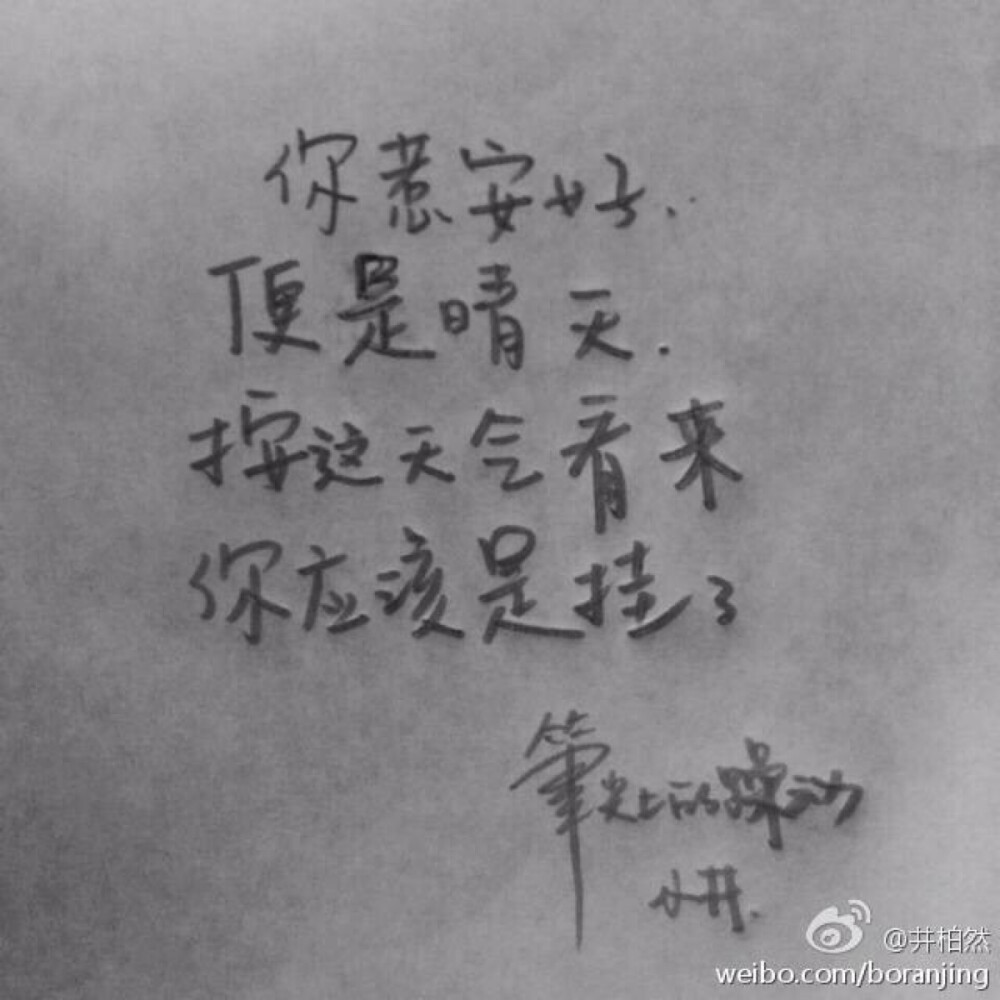 你惹安好..
便是晴天.
按这天气看来
你应该是挂了
筆尖上的躁动
小井.
@井柏然
weibo.com/boranjing